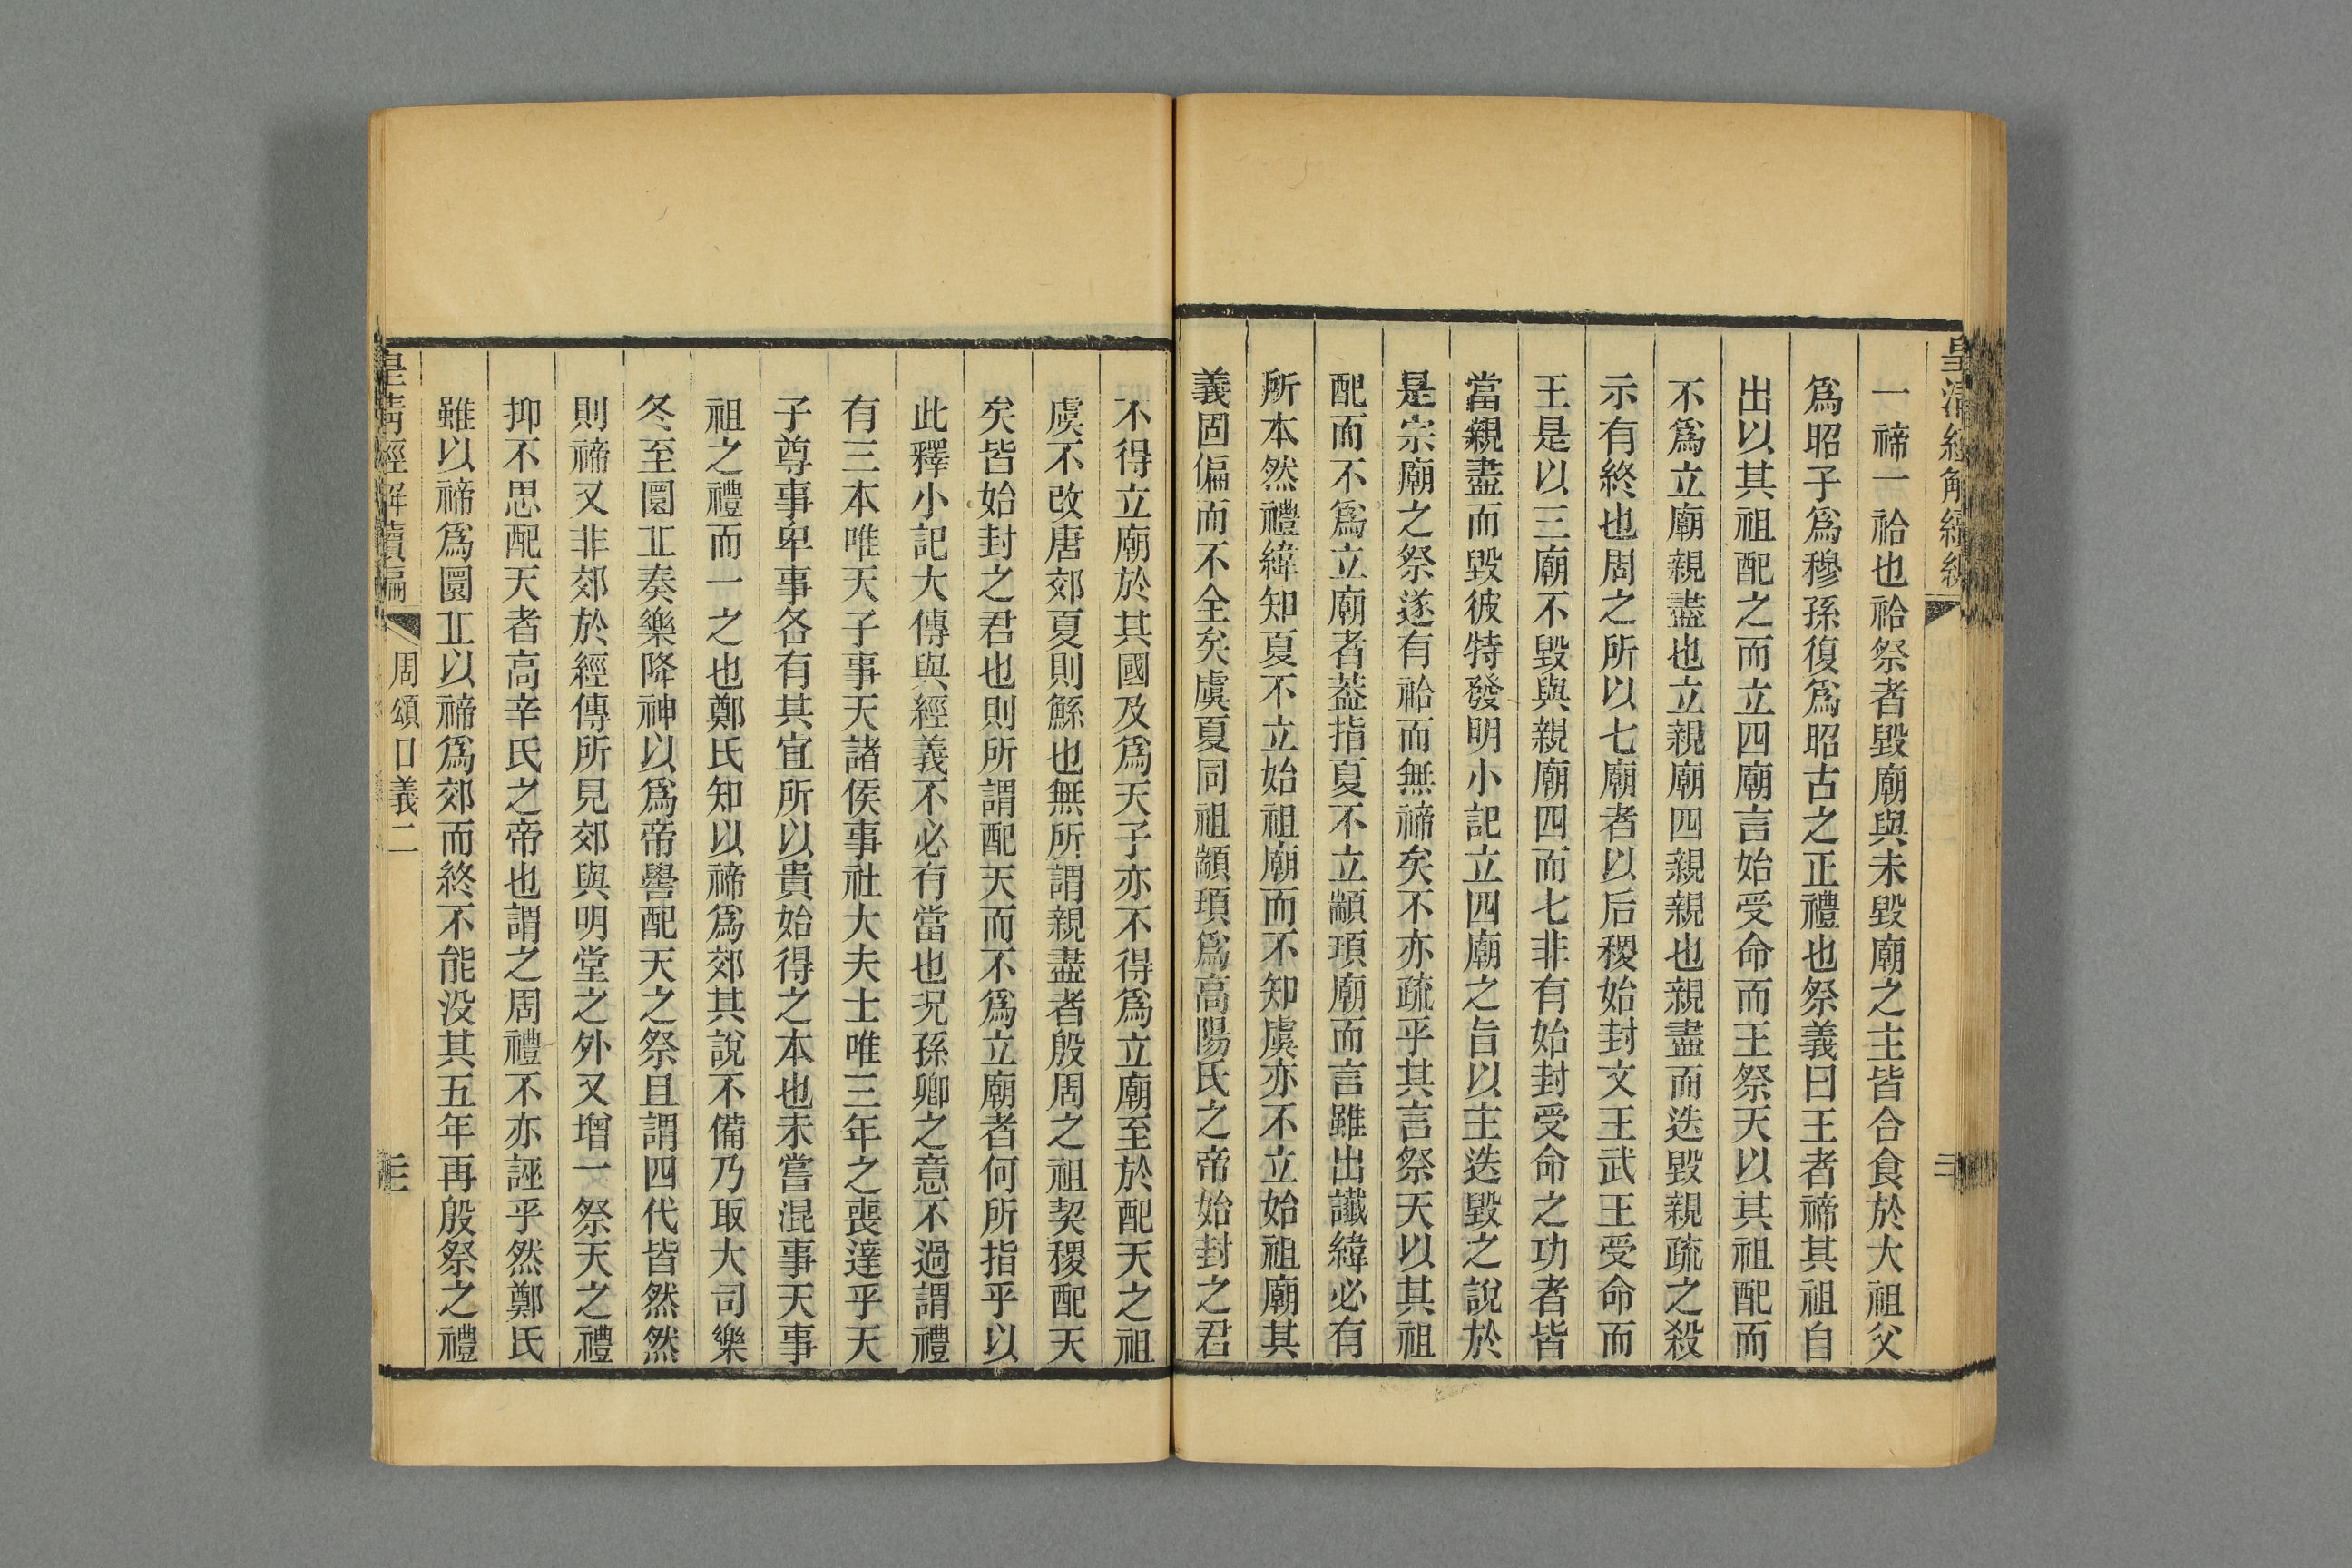 一禘一祫也祫祭者毀廟與未毀廟之主皆合食於大祖父
爲昭子爲穆孫復爲昭古之正禮也祭義曰王者禘其祖自
出以其祖配之而立四廟言始受命而王祭天以其祖配而
不爲立廟親盡也立親廟四親親也親盡而迭毀親疏之殺
示有終也周之所以七廟者以后稷始封文王武王受命而
王是以三廟不毀與親廟四而七非有始封受命之功者皆
當親盡而毀彼特發明小記立四廟之旨以主迭毀之說於
是宗廟之祭遂有祫而無禘矣不亦疏乎其言祭天以其祖
配而不爲立廟者葢指夏不立顓頊廟而言雖出讖緯必有
所本然禮緯知夏不立始祖廟而不知虞亦不立始祖廟其
義固偏而不全矣虞夏同祖顓頊爲高陽氏之帝始封之君
不得立廟於其國及爲天子亦不得爲立廟至於配天之祖
虞不改唐郊夏則鯀也無所謂親盡者殷周之祖契稷配天
矣皆始封之君也則所謂配天而不爲立廟者何所指乎以
此釋小記大傳與經義不必有當也況孫卿之意不過謂禮
有三本唯天子事天諸侯事社大夫士唯三年之喪達乎天
子尊事卑事各有其宜所以貴始得之本也未嘗混事天事
祖之禮而一之也鄭氏知以禘爲郊其說不備乃取大司樂
冬至圜丠奏樂降神以爲帝嚳配天之祭且謂四代皆然然
則禘又非郊於經傳所見郊與明堂之外又增一祭天之禮
抑不思配天者高辛氏之帝也謂之周禮不亦誣乎然鄭氏
雖以禘爲圜丠以禘爲郊而終不能没其五年再殷祭之禮
皇清經解續編
周頌口義二